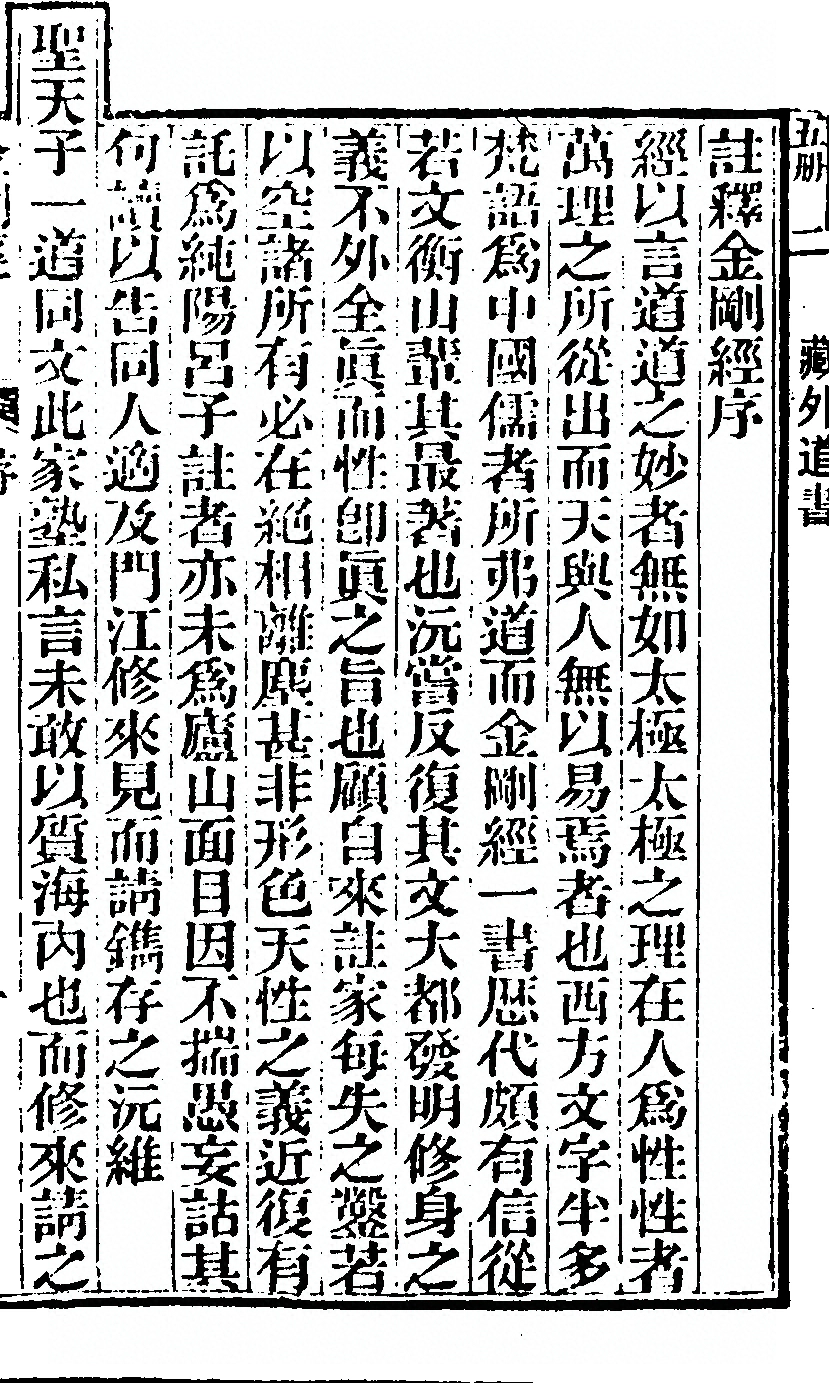 五册 二 藏外道書
註釋金剛經序
經以言道道之妙者無如太極太極之理在人爲性性者
萬理之所從出而天與人無以易焉者也西方文字半多
梵語爲中國儒者所弗道而金剛經一書歷代頗有信從
若文衡山輩其最著也沅嘗反復其文大都發明修身之
義不外全眞而性卽眞之旨也顧自來註家每失之鑿若
以空諸所有必在絕相離塵甚非形色天性之義近復有
託爲純陽呂子註者亦未爲廬山面目因不揣愚妄詁其
句讀以告同人適及門江修來見而請鐫存之沅維
聖天子一道同文此家塾私言未敢以質海內也而修來請之